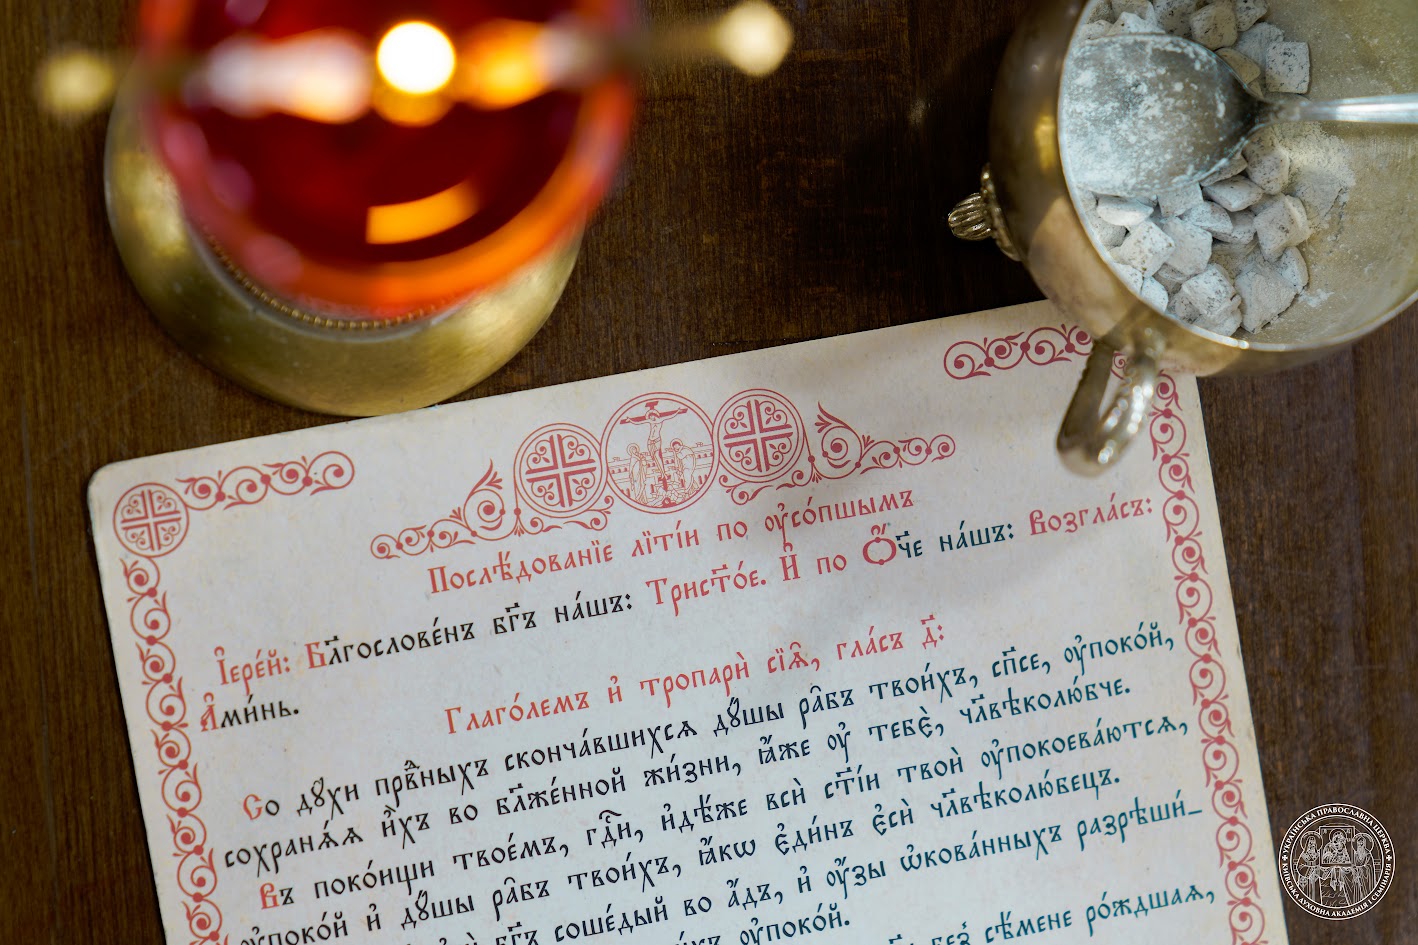 Послѣ́дованїе лїті́и по ᲂу҆со́пшымъ
І҆ере́й: Бл҃гослове́нъ бг҃ъ на́шъ: Трист҃о́е. И҆ по Ѻ҆́ч҃е на́шъ: Возгла́съ:
А҆ми́нь.
Глаго́лемъ и҆ тропарѝ сїѧ̑, гла́съ д҃:
Со дꙋ́хи првⷣныхъ сконча́вшихсѧ дꙋ́шы ра̑бъ твои́хъ, сп҃се, ᲂу҆поко́й,
сохранѧ́ѧ и҆̀хъ во бл҃же́нной жи́зни, ꙗ҆́же ᲂу҆ тебє̀, чл҃вѣколю́бче.
Въ поко́ищи твое́мъ, гдⷭ҇и, и҆дѣ́же всѝ ст҃і́и твоѝ ᲂу҆покоева́ютсѧ,
ᲂу҆поко́й и҆ дꙋ́шы ра̑бъ твои́хъ, ꙗ҆́кѡ є҆ди́нъ є҆сѝ чл҃вѣколю́бецъ.
бг҃ъ соше́дый во а҆́дъ, и҆ ᲂу҆́зы ѡ҆кова́нныхъ разрѣши́_
ᲂу҆поко́й.
без̾ сѣ́мене ро́ждшаѧ,
УКРАЇНСЬКА ПРАВОСЛАВНА ЦЕРКВА
КИЇВСЬКА ДУХОВНА АКАДЕМІЯ І СЕМІНАРІЯ